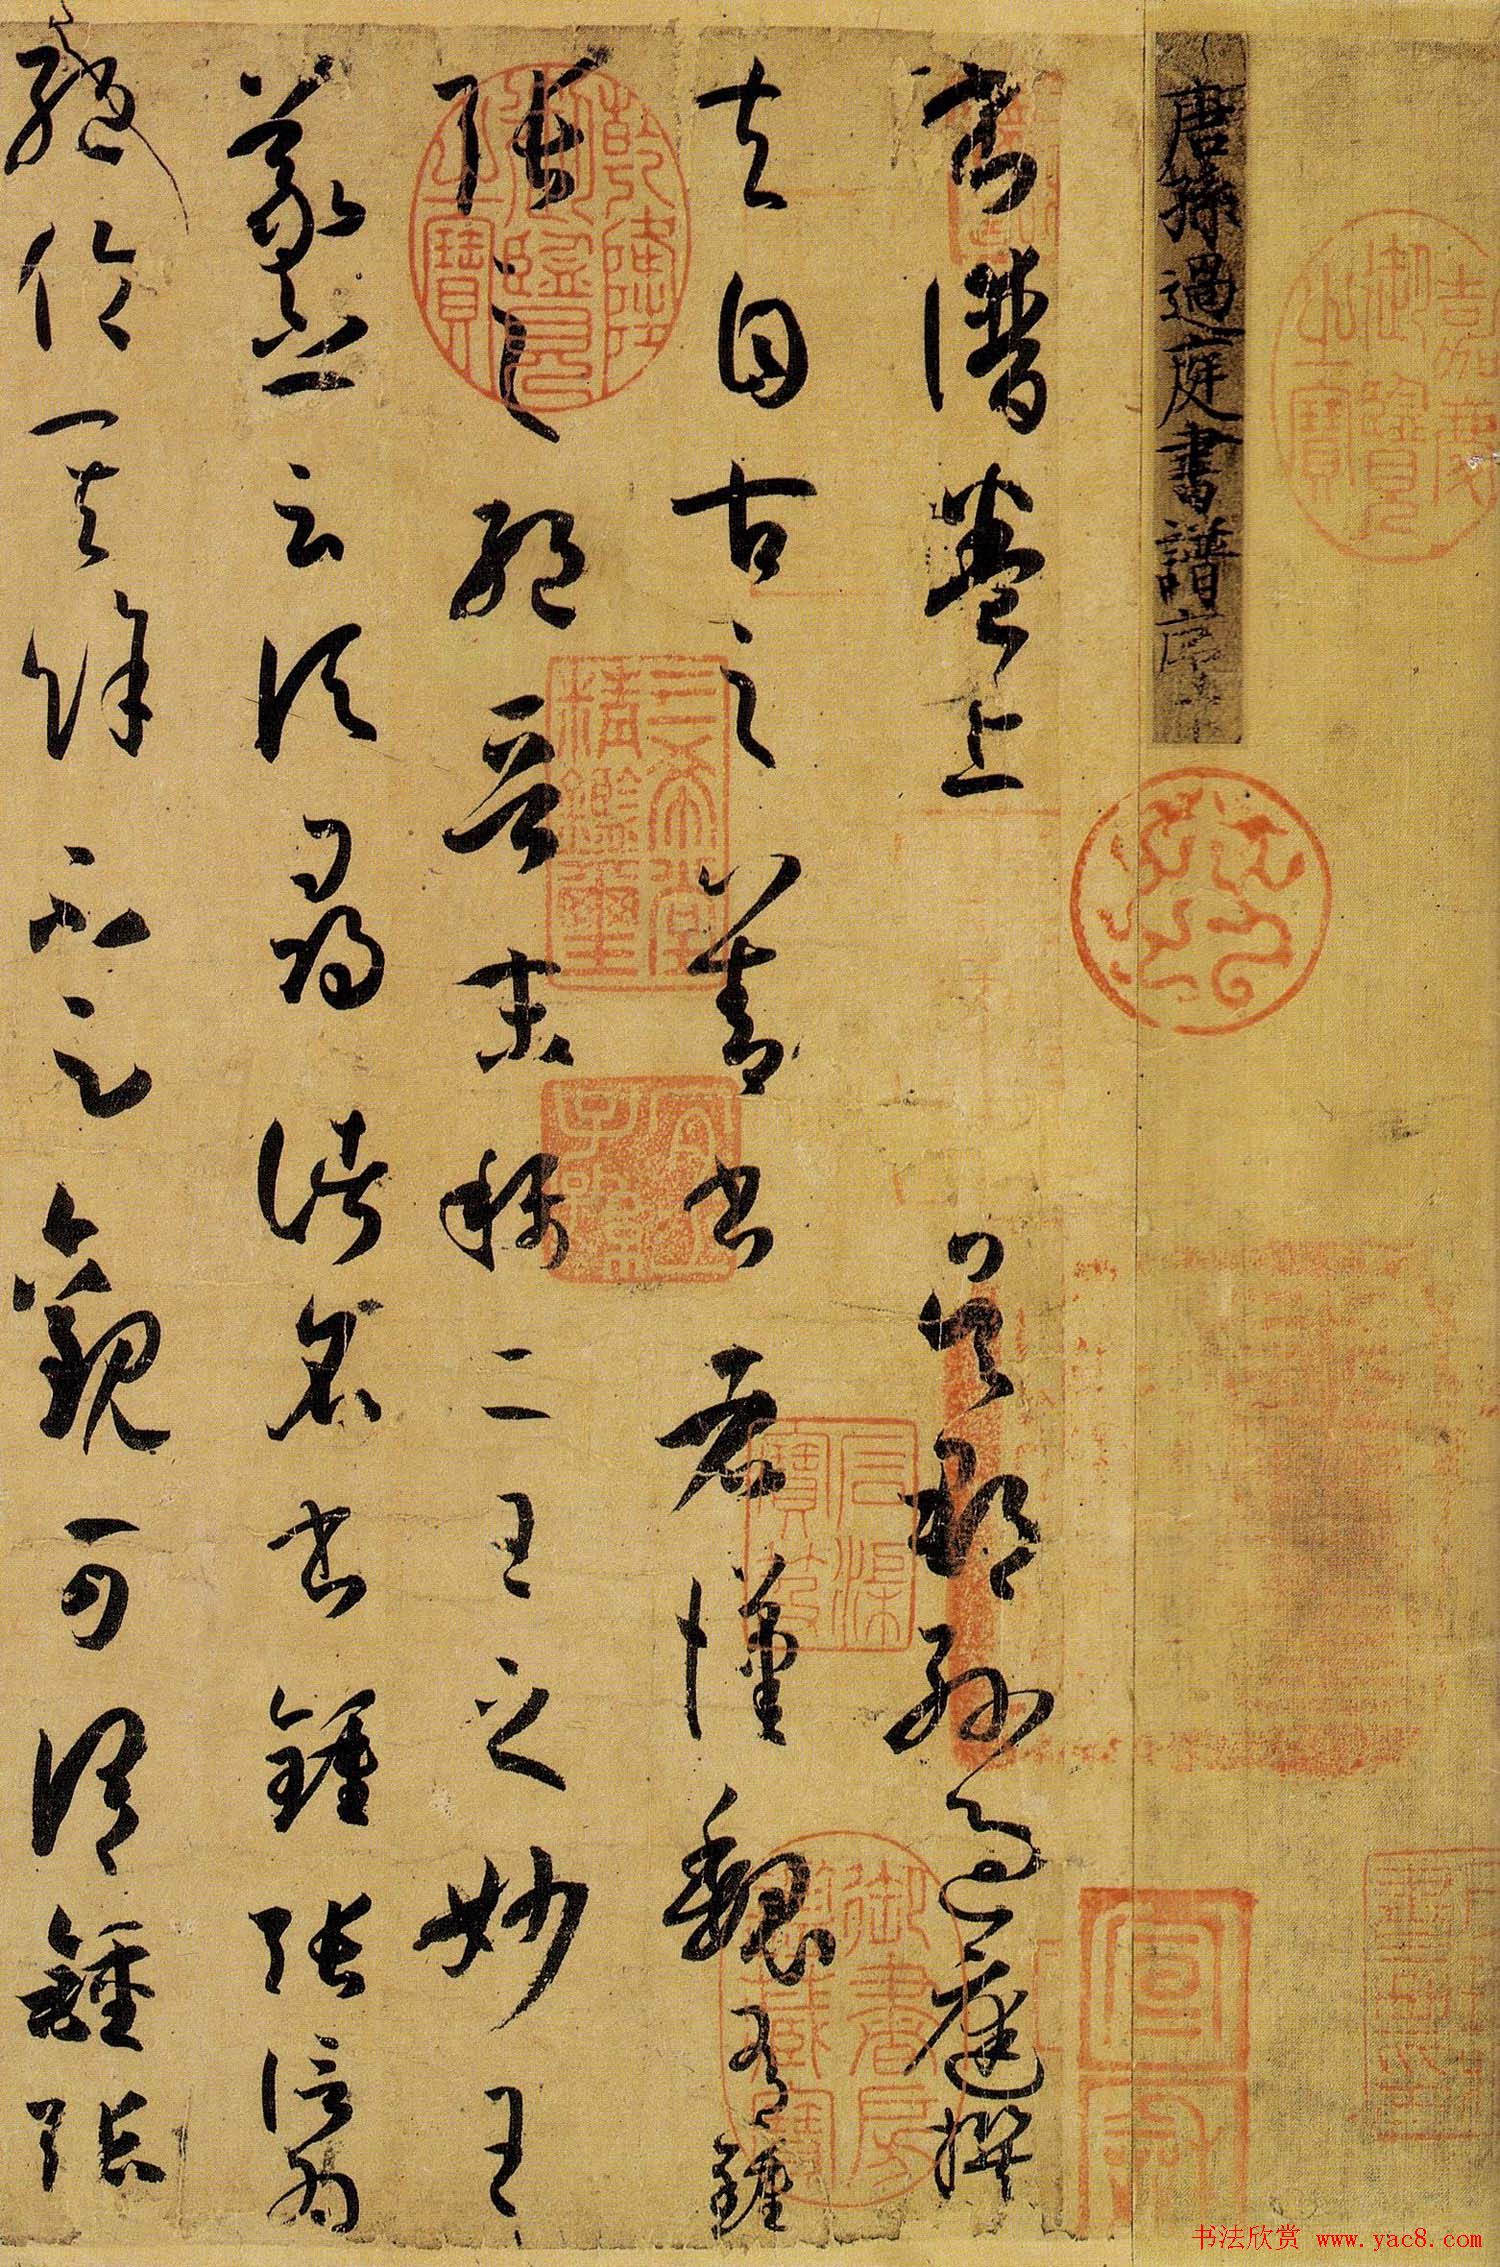 嘉慶御覽之寶
唐孫過庭書譜序
書譜卷上 吳郡孫過庭撰
夫自古之善書者漢魏有鍾
張之絕晉末稱二王之妙王
羲之云頃尋諸名書鍾張信為
絕倫其餘不足觀可謂鍾張
乾隆御覽之寶
三希堂精鑑璽
宜子孫
石渠寶笈
御書房鑑藏寶
宣龢
书法欣赏 www.yac8.com